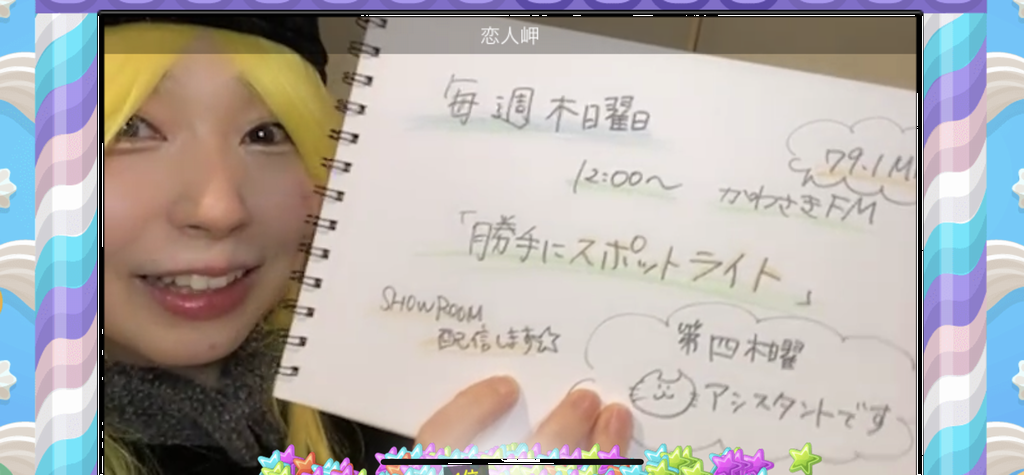 恋人岬
毎週木曜日
79.1M
12:00〜
かわさきFM
「勝手にスポットライト」
SHOWROOM
配信します☆
第四木曜
アシスタントです